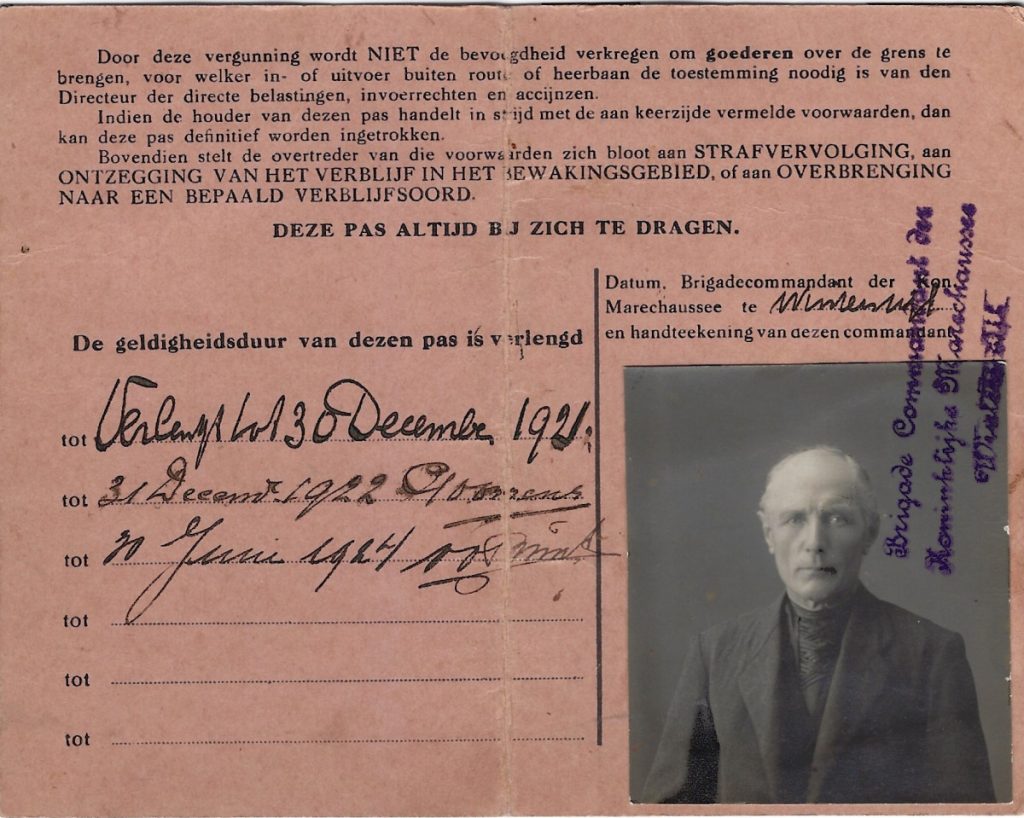 Door deze vergunning wordt NIET de bevoegdheid verkregen om goederen over de grens te
brengen, voor welker in- of uitvoer buiten route of heerbaan de toestemming noodig is van den
Directeur der directe belastingen, invoerrechten en accijnzen.
Indien de houder van dezen pas handelt in strijd met de aan keerzijde vermelde voorwaarden, dan
kan deze pas definitief worden ingetrokken.
Bovendien stelt de overtreder van die voorwaarden zich bloot aan STRAFVERVOLGING, aan
ONTZEGGING VAN HET VERBLIJF IN HET BEWAKINGSGEBIED, of aan OVERBRENGING
NAAR EEN BEPAALD VERBLIJFSOORD.
DEZE PAS ALTIJD BIJ ZICH TE DRAGEN.
De geldigheidsduur van dezen pas is verlengd
tot Verlengt tot 30 December 1921.
tot 31 Decemb. 1922
tot 30 Juni 1924
tot
tot
tot
Datum, Brigadecommandant der Kon.
Marechaussee te Winterswijk
en handteekening van dezen commandant.
Brigade Commandant der
Koninklijke Marechaussee